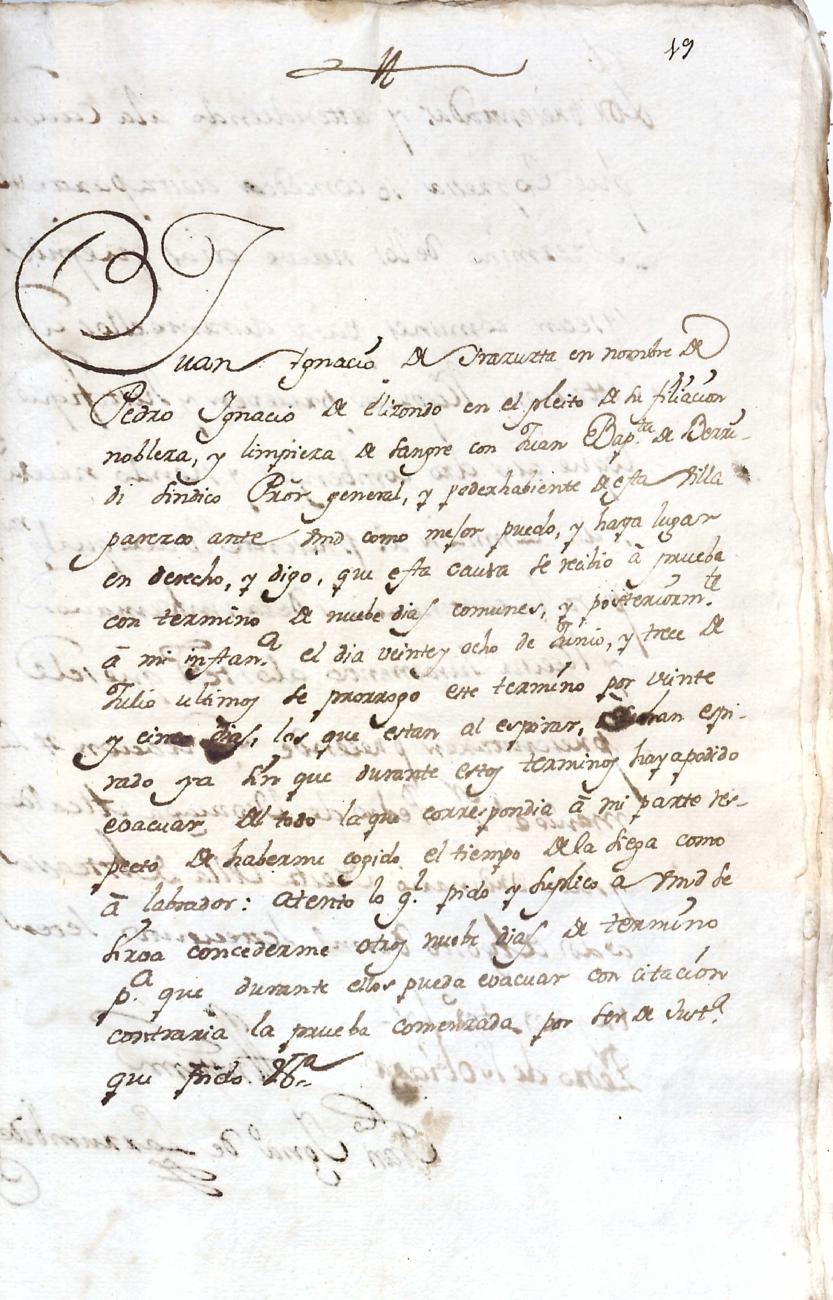 19
Juan Ignacio de Irazuzta en nombre de
Pedro Ignacio de Elizondo en el pleito de su filiacion
nobleza, y limpieza de sangre con Juan Bap.ta de Berru-
di sindico Pror general, y poderhabiente de esta Villa
parezco ante Vmd como mejor puedo, y haya lugar
en derecho, y digo, que esta causa se recibio à prueba
con termino de nuebe dias comunes, y posteriorm.te
à mi instan.a el dia veinte y ocho de Junio, y trece de
Julio ultimos se prorrogo este termino por veinte
y cinco dias, los que estan al espirar, han espi-
rado ya sin que durante estos terminos haya podido
evacuar del todo la que correspondia à mi parte res-
pecto de haberme cogido el tiempo de la siega como
à labrador: Atento lo q.l pido y suplico a Vmd se
sirva concederme otros nuebe dias de termino
p.a que durante ellos pueda evacuar con citacion
contraria la prueba comenzada por ser de Just.a
que pido